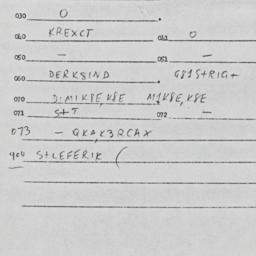 030 0
040 KREXCT 041 0
050 — 051 —
060 DERKSIND G81S+RIG+
070 D:MIK8E, K8E MIK8E, K8E
071 S+T 072 —
073 - QKAK3RCAX
904 S+LEFERIK (